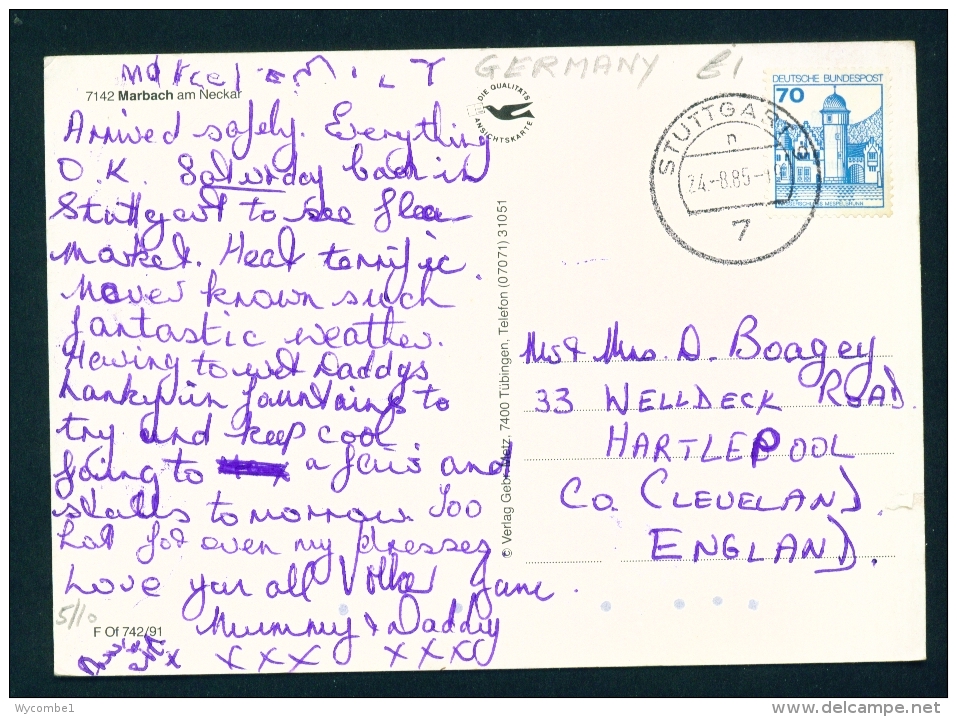 Marcel EMILY
GERMANY £1
7142 Marbach am Neckar
Arrived safely. Everything
O.K. Saturday back in
Stuttgart to see flea
Market. Heat terrific.
Never known such
fantastic weather.
Having to wet Daddys
hanky in fountains to
try and keep cool.
Going to a fair and
stalls tomorrow. Too
hot for even my dresses
Love you all Volker Jane.
Mummy & Daddy
x x x x x x x
5/10
F Of 742/91
DIE QUALITÄTS
ANSICHTSKARTE
© Verlag Gebr. Metz, 7400 Tübingen, Telefon (07071) 31051
STUTTGART
n
24.-8.85-
7
DEUTSCHE BUNDESPOST
70
WASSERSCHLOSS MESPELBRUNN
Mr & Mrs. D. Boagey
33 WELLDECK ROAD.
HARTLEPOOL
CO. CLEVELAND.
ENGLAND.
Wycombe1
www.delcampe.net